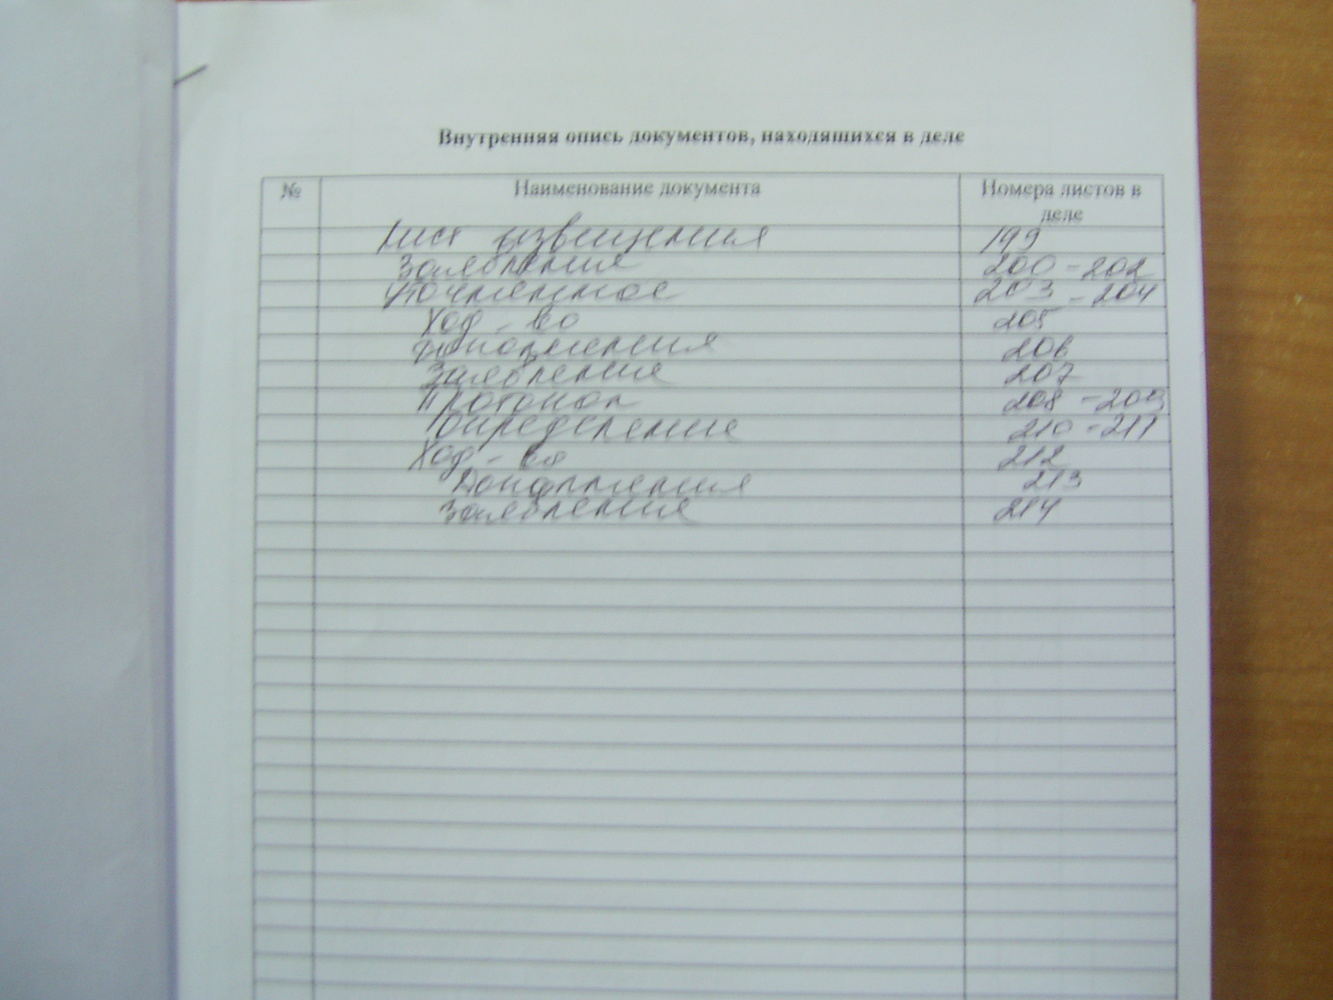 Внутренняя опись документов, находящихся в деле
№ Наименование документа Номера листов в
деле
Лист извещения 199
Заявления 200 - 202
Уточненное 203 - 204
Ход - во 205
Дополнения 206
Заявления 207
Протокол 208 - 209
Определение 210 - 211
Ход - во 212
Дополнения 213
Заявления 214